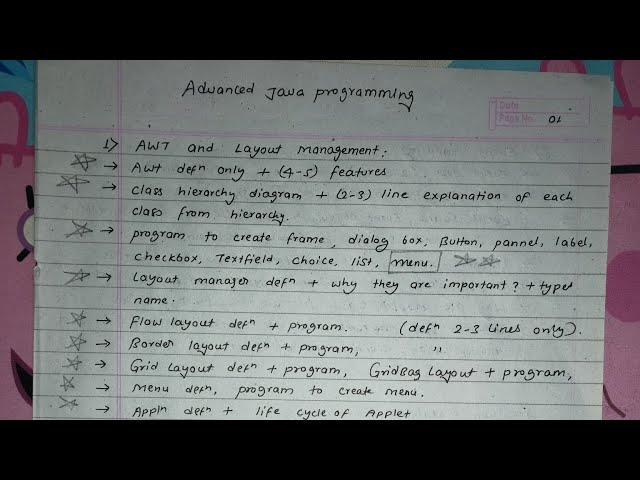 Advanced Java programming
Date
Page No. 01
1) AWT and Layout Management:
→ AWT defn only + (4-5) features
→ class hierarchy diagram + (2-3) line explanation of each
class from hierarchy.
→ program to create frame, dialog box, Button, pannel, label,
checkbox, Textfield, choice, list, menu.
→ Layout manager defn + why they are important? + types
name.
→ Flow layout defn + program. (defn 2-3 lines only).
→ Border layout defn + program, "
→ Grid Layout defn + program, GridBag Layout + program,
→ Menu defn, program to create menu.
→ Appln defn + life cycle of Applet